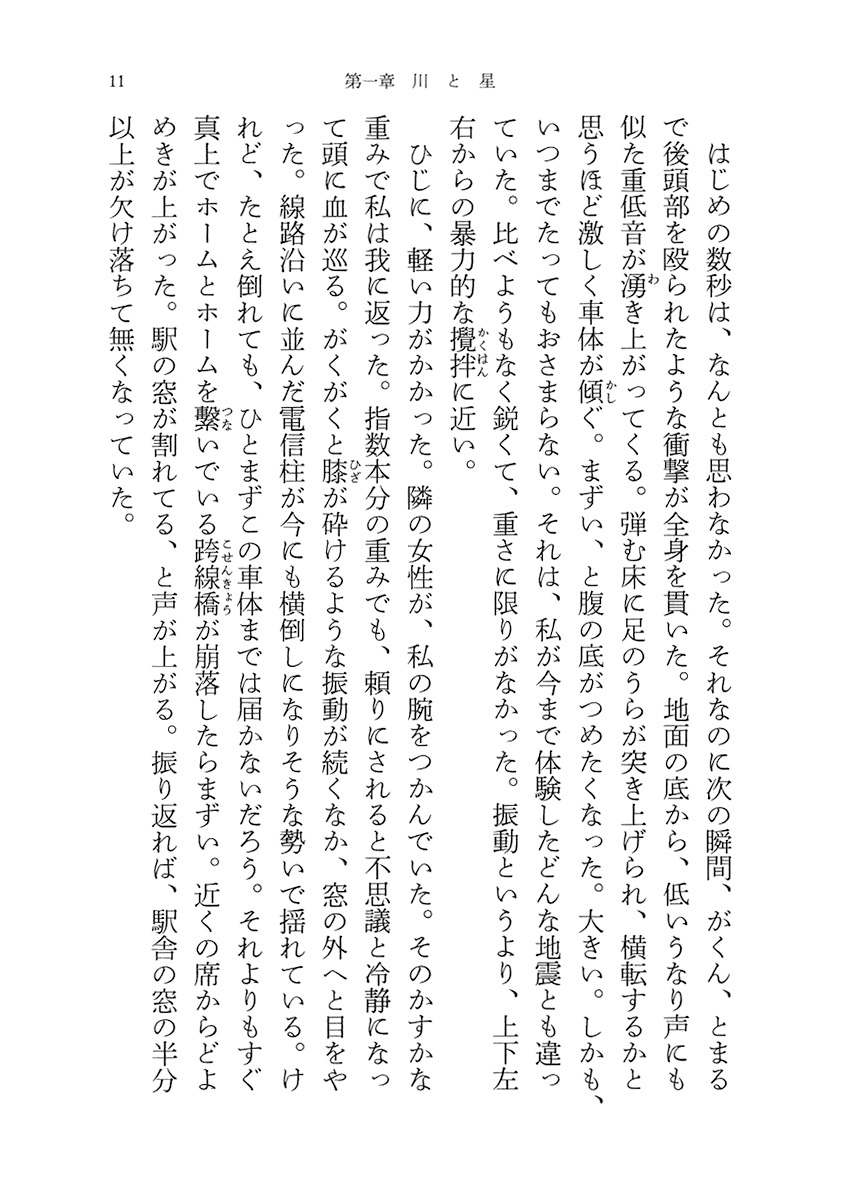 11
第一章 川と星
はじめの数秒は、なんとも思わなかった。それなのに次の瞬間、がくん、とまる
で後頭部を殴られたような衝撃が全身を貫いた。地面の底から、低いうなり声にも
似た重低音が湧き上がってくる。弾む床に足のうらが突き上げられ、横転するかと
思うほど激しく車体が傾ぐ。まずい、と腹の底がつめたくなった。大きい。しかも、
いつまでたってもおさまらない。それは、私が今まで体験したどんな地震とも違っ
ていた。比べようもなく鋭くて、重さに限りがなかった。振動というより、上下左
右からの暴力的な攪拌に近い。
ひじに、軽い力がかかった。隣の女性が、私の腕をつかんでいた。そのかすかな
重みで私は我に返った。指数本分の重みでも、頼りにされると不思議と冷静になっ
て頭に血が巡る。がくがくと膝が砕けるような振動が続くなか、窓の外へと目をや
った。線路沿いに並んだ電信柱が今にも横倒しになりそうな勢いで揺れている。け
れど、たとえ倒れても、ひとまずこの車体までは届かないだろう。それよりもすぐ
真上でホームとホームを繫いでいる跨線橋が崩落したらまずい。近くの席からどよ
めきが上がった。駅の窓が割れてる、と声が上がる。振り返れば、駅舎の窓の半分
以上が欠け落ちて無くなっていた。
わ
かし
かくはん
ひざ
つな
こせんきょう